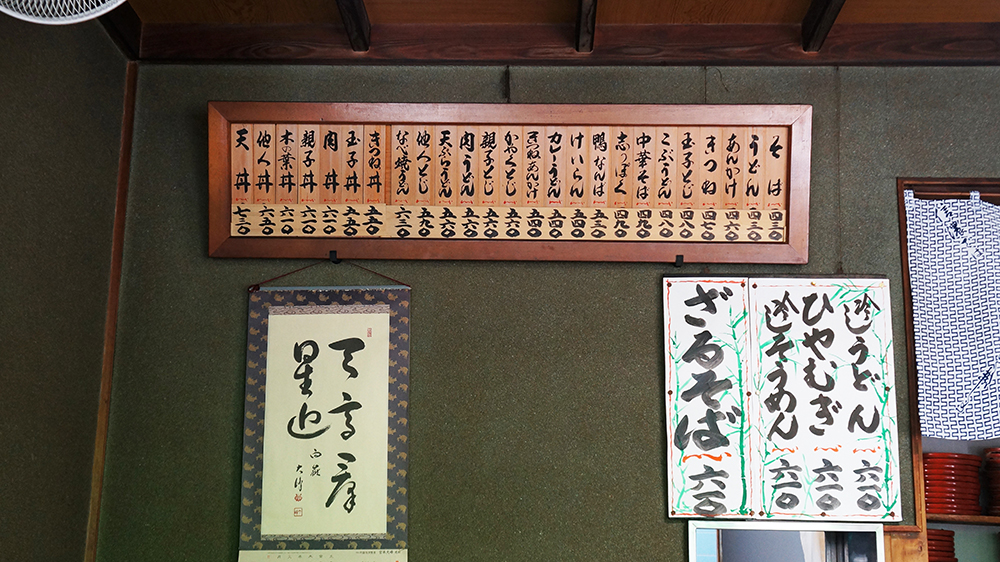 そば 四三〇
うどん 四三〇
あんかけ 四六〇
きつね 四七〇
玉子とじ 四八〇
こぶうどん
中華そば 四九〇
志っぽく 四九〇
鴨なんば 五三〇
けいらん 五四〇
カレーうどん
きつねあんかけ
かやくとじ
親子とじ 五六〇
肉うどん 五六〇
天ぷらうどん
他人とじ 五九〇
なべ焼うどん 六三〇
きつね丼 五五〇
玉子丼 五五〇
肉丼 六一〇
親子丼 六一〇
木の葉丼 六一〇
他人丼 六五〇
天丼 七三〇
冷しうどん 六一〇
ひやむぎ 六一〇
冷しそうめん 六一〇
ざるそば 六一〇
天高群
星近